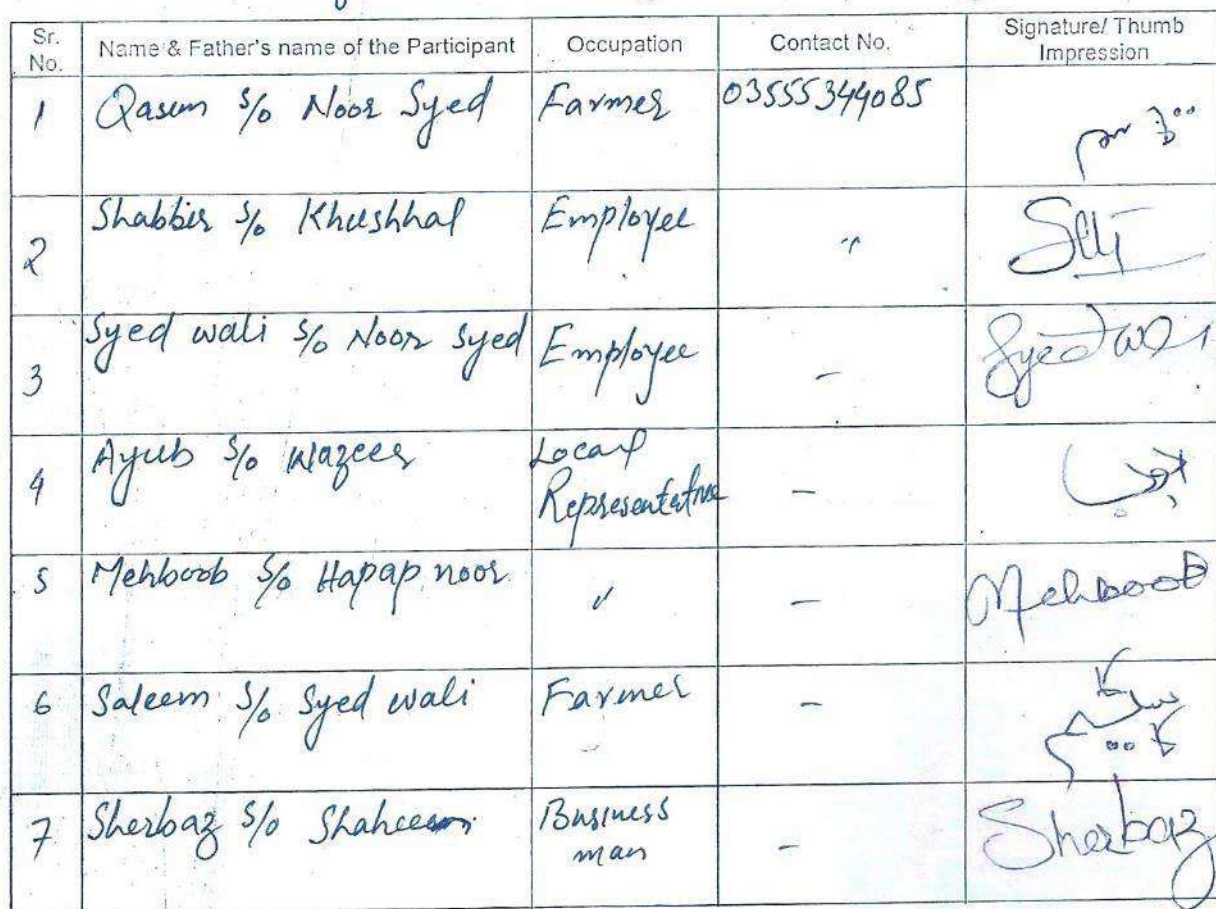 Sr. No. Name & Father's name of the Participant Occupation Contact No. Signature/ Thumb Impression
1 Qasum s/o Noor Syed Farmer 03555344085
2 Shabbir s/o Khushhal Employee "
3 Syed wali s/o Noor Syed Employee - Syed wali
4 Ayub s/o Wazeer Local Representative - ایوب
5 Mehboob s/o Hapap noor " - Mehboob
6 Saleem s/o Syed wali Farmer - سلیم
7 Sherbaz s/o Shaheem Business man - Sherbaz